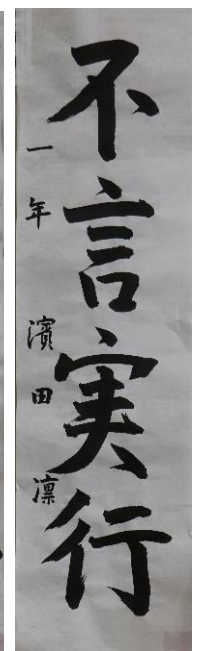 不言実行
一年 濱田凛